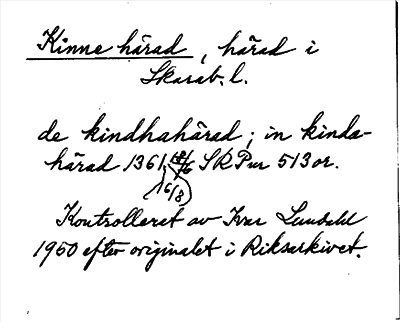 Kinne härad, härad i
Skarab. l.
de kindhahärad; in kinda-
härad 1361 SRPur 513 or.
16/8
Kontrollerat av Ivar Lundahl
1950 efter originalet i Riksarkivet.